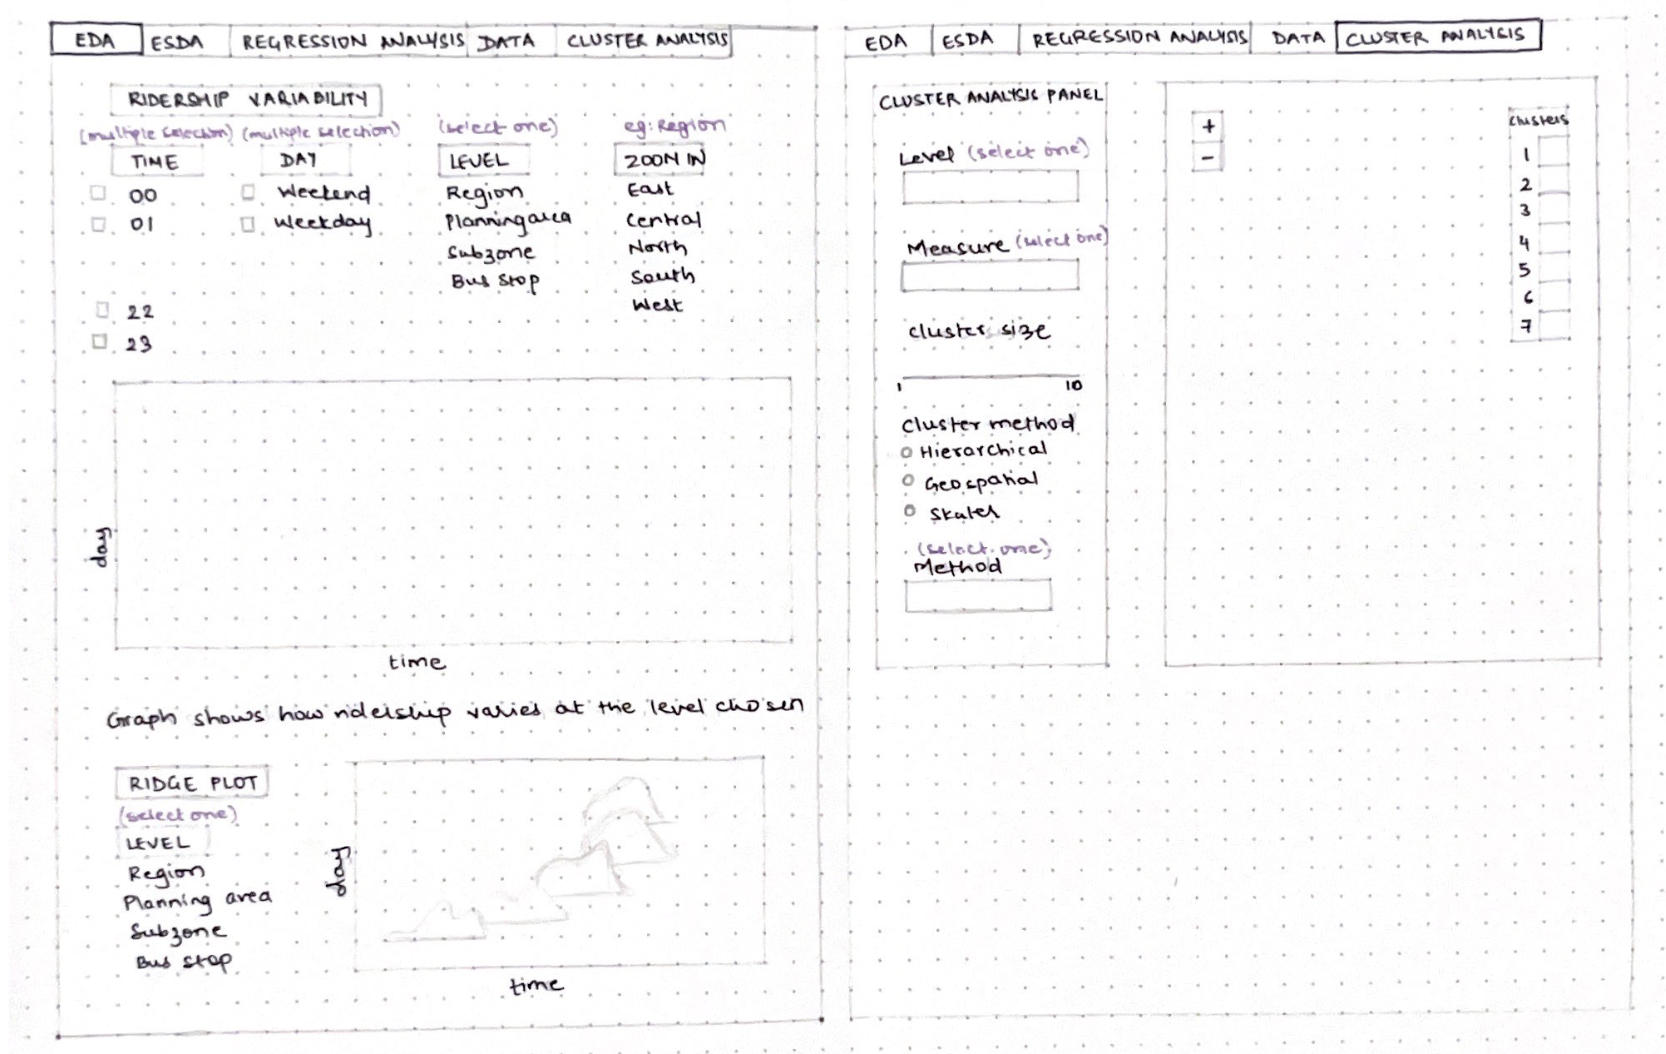 EDA ESDA REGRESSION ANALYSIS DATA CLUSTER ANALYSIS
RIDERSHIP VARIABILITY
(multiple selection) (multiple selection) (select one) eg: Region
TIME DAY LEVEL ZOOM IN
00 Weekend Region East
01 Weekday Planning area Central
Subzone North
Bus Stop South
22 West
23
day
time
Graph shows how ridership varies at the level chosen
RIDGE PLOT
(select one)
LEVEL
Region
Planning area
Subzone
Bus stop
day
time
EDA ESDA REGRESSION ANALYSIS DATA CLUSTER ANALYSIS
CLUSTER ANALYSIS PANEL
Level (select one)
Measure (select one)
cluster size
1 10
Cluster method
Hierarchical
Geospatial
Skater
(select one)
Method
+
-
clusters
1
2
3
4
5
6
7